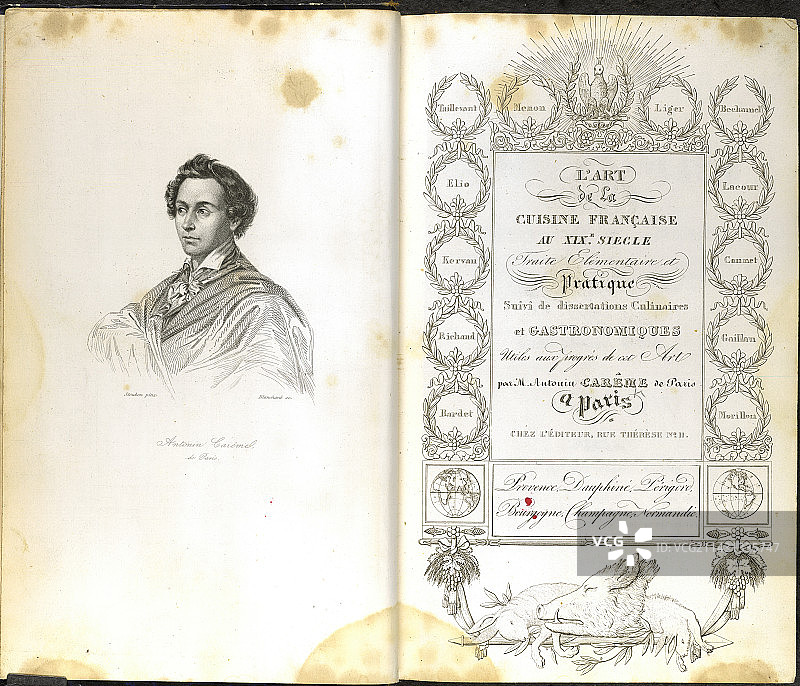 Steuben pinx.
Blanchard sc.
Antonin Carême
de Paris.
Taillevant
Menon
Liger
Bechamel
Elio
Lacour
Kervan
Canmet
Richaud
Gaillau
Bardet
Morillon
L'ART
de la
CUISINE FRANÇAISE
AU XIX.E SIECLE
Traité Elémentaire et
Pratique
Suivi de dissertations Culinaires
et GASTRONOMIQUES
Utiles aux progrès de cet Art
par M. Antonin CARÊME de Paris
à Paris
CHEZ L'ÉDITEUR, RUE THÉRÈSE No 11.
Provence, Dauphiné, Périgord,
Bourgogne, Champagne, Normandie.
VCG